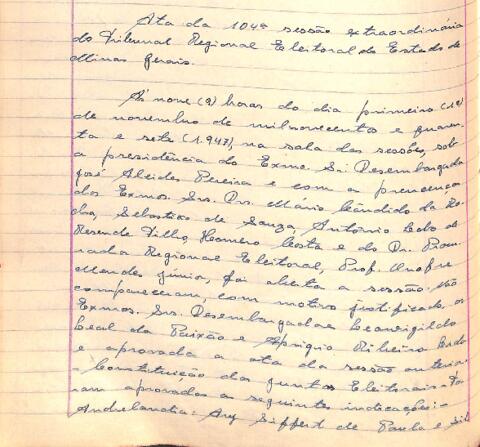 Ata da 104ª sessão extraordinária
do Tribunal Regional Eleitoral do Estado de
Minas Gerais.
Às nove (9) horas do dia primeiro (1º)
de novembro de milnovecentos e quaren-
ta e sete (1.947), na sala das sessões, sob
a presidência do Exmo. Sr. Desembargador
José Alcides Pereira e com a presença
dos Exmos. Srs. Drs. Mário Cândido da Ro-
cha, Sebastião de Souza, Antônio Pedro de
Resende Filho, Homero Costa e do Dr. Procu-
rador Regional Eleitoral, Prof. Onofre
Mendes Júnior, foi aberta a sessão. Não
compareceram, com motivo justificado, os
Exmos. Srs. Desembargadores Leovigildo
Leal da Paixão e Aprigio Ribeiro. Lida
e aprovada a ata da sessão anterior
- Constituição das juntas Eleitorais - Fo-
ram aprovadas as seguintes indicações: -
Andrelandia: Ary Siffert de Paula e